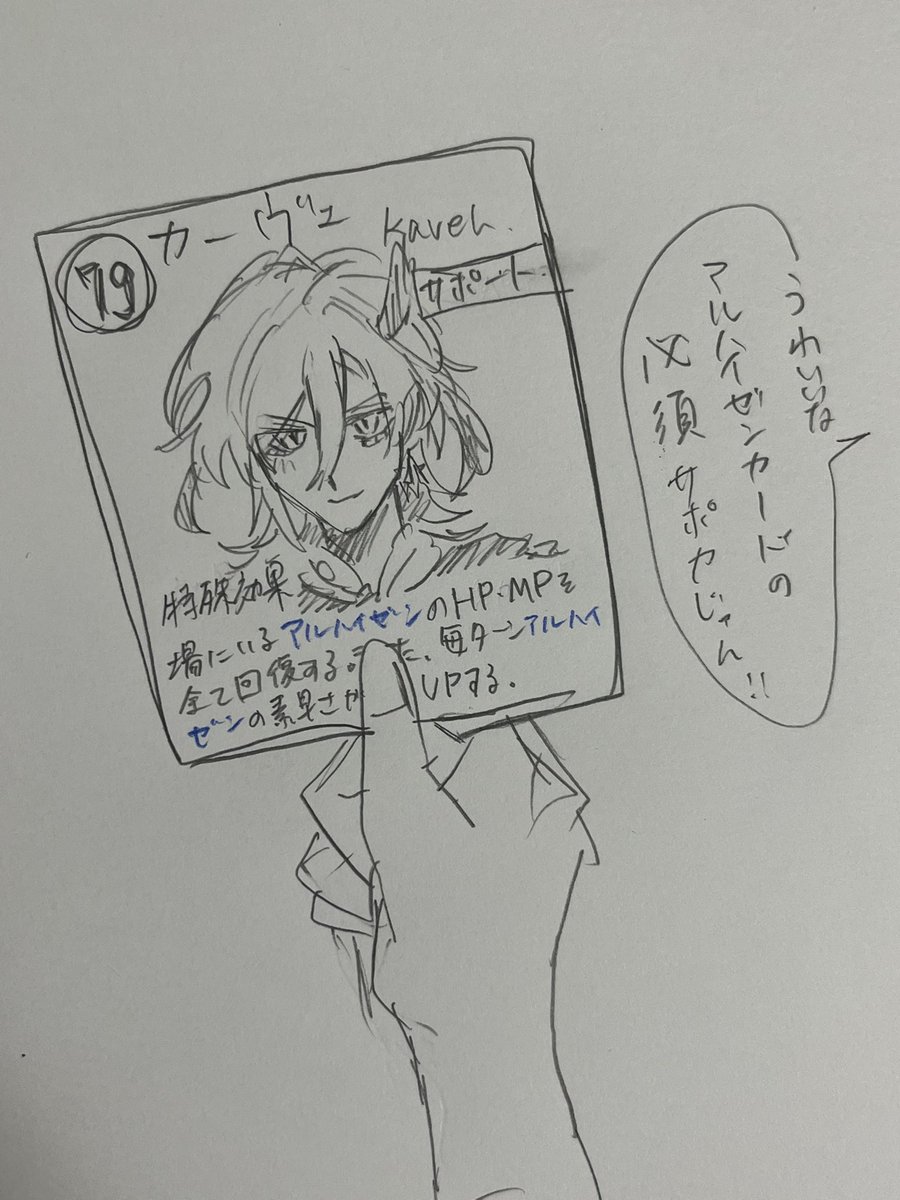 カーヴェ Kaveh.
79
サポート
特殊効果
場にいるアルハイゼンのHP・MPを
全て回復する。また、毎ターンアルハイ
ゼンの素早さが UPする。
うわいいな
アルハイゼンカードの
必須サポカじゃん!!